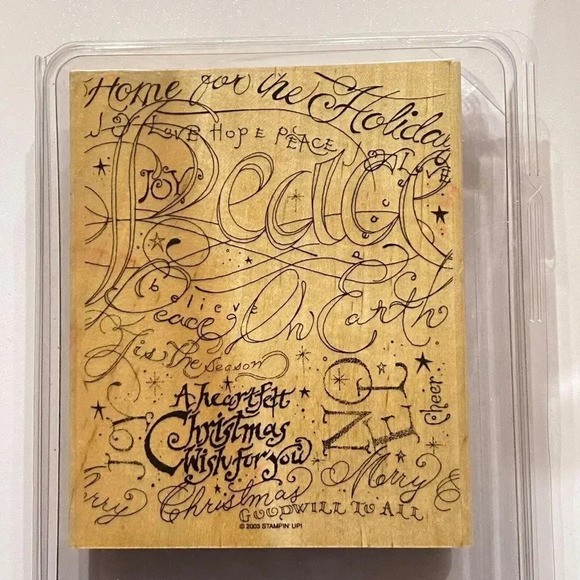 Home for the Holidays
JOY LOVE HOPE PEACE
JOY
Peace
Peace
believe
Peace On Earth
Tis the season
NOEL
Cheer...
A heartfelt
Christmas
Wish for you
JOY
Merry
Christmas
GOODWILL TO ALL
© 2003 STAMPIN' UP!